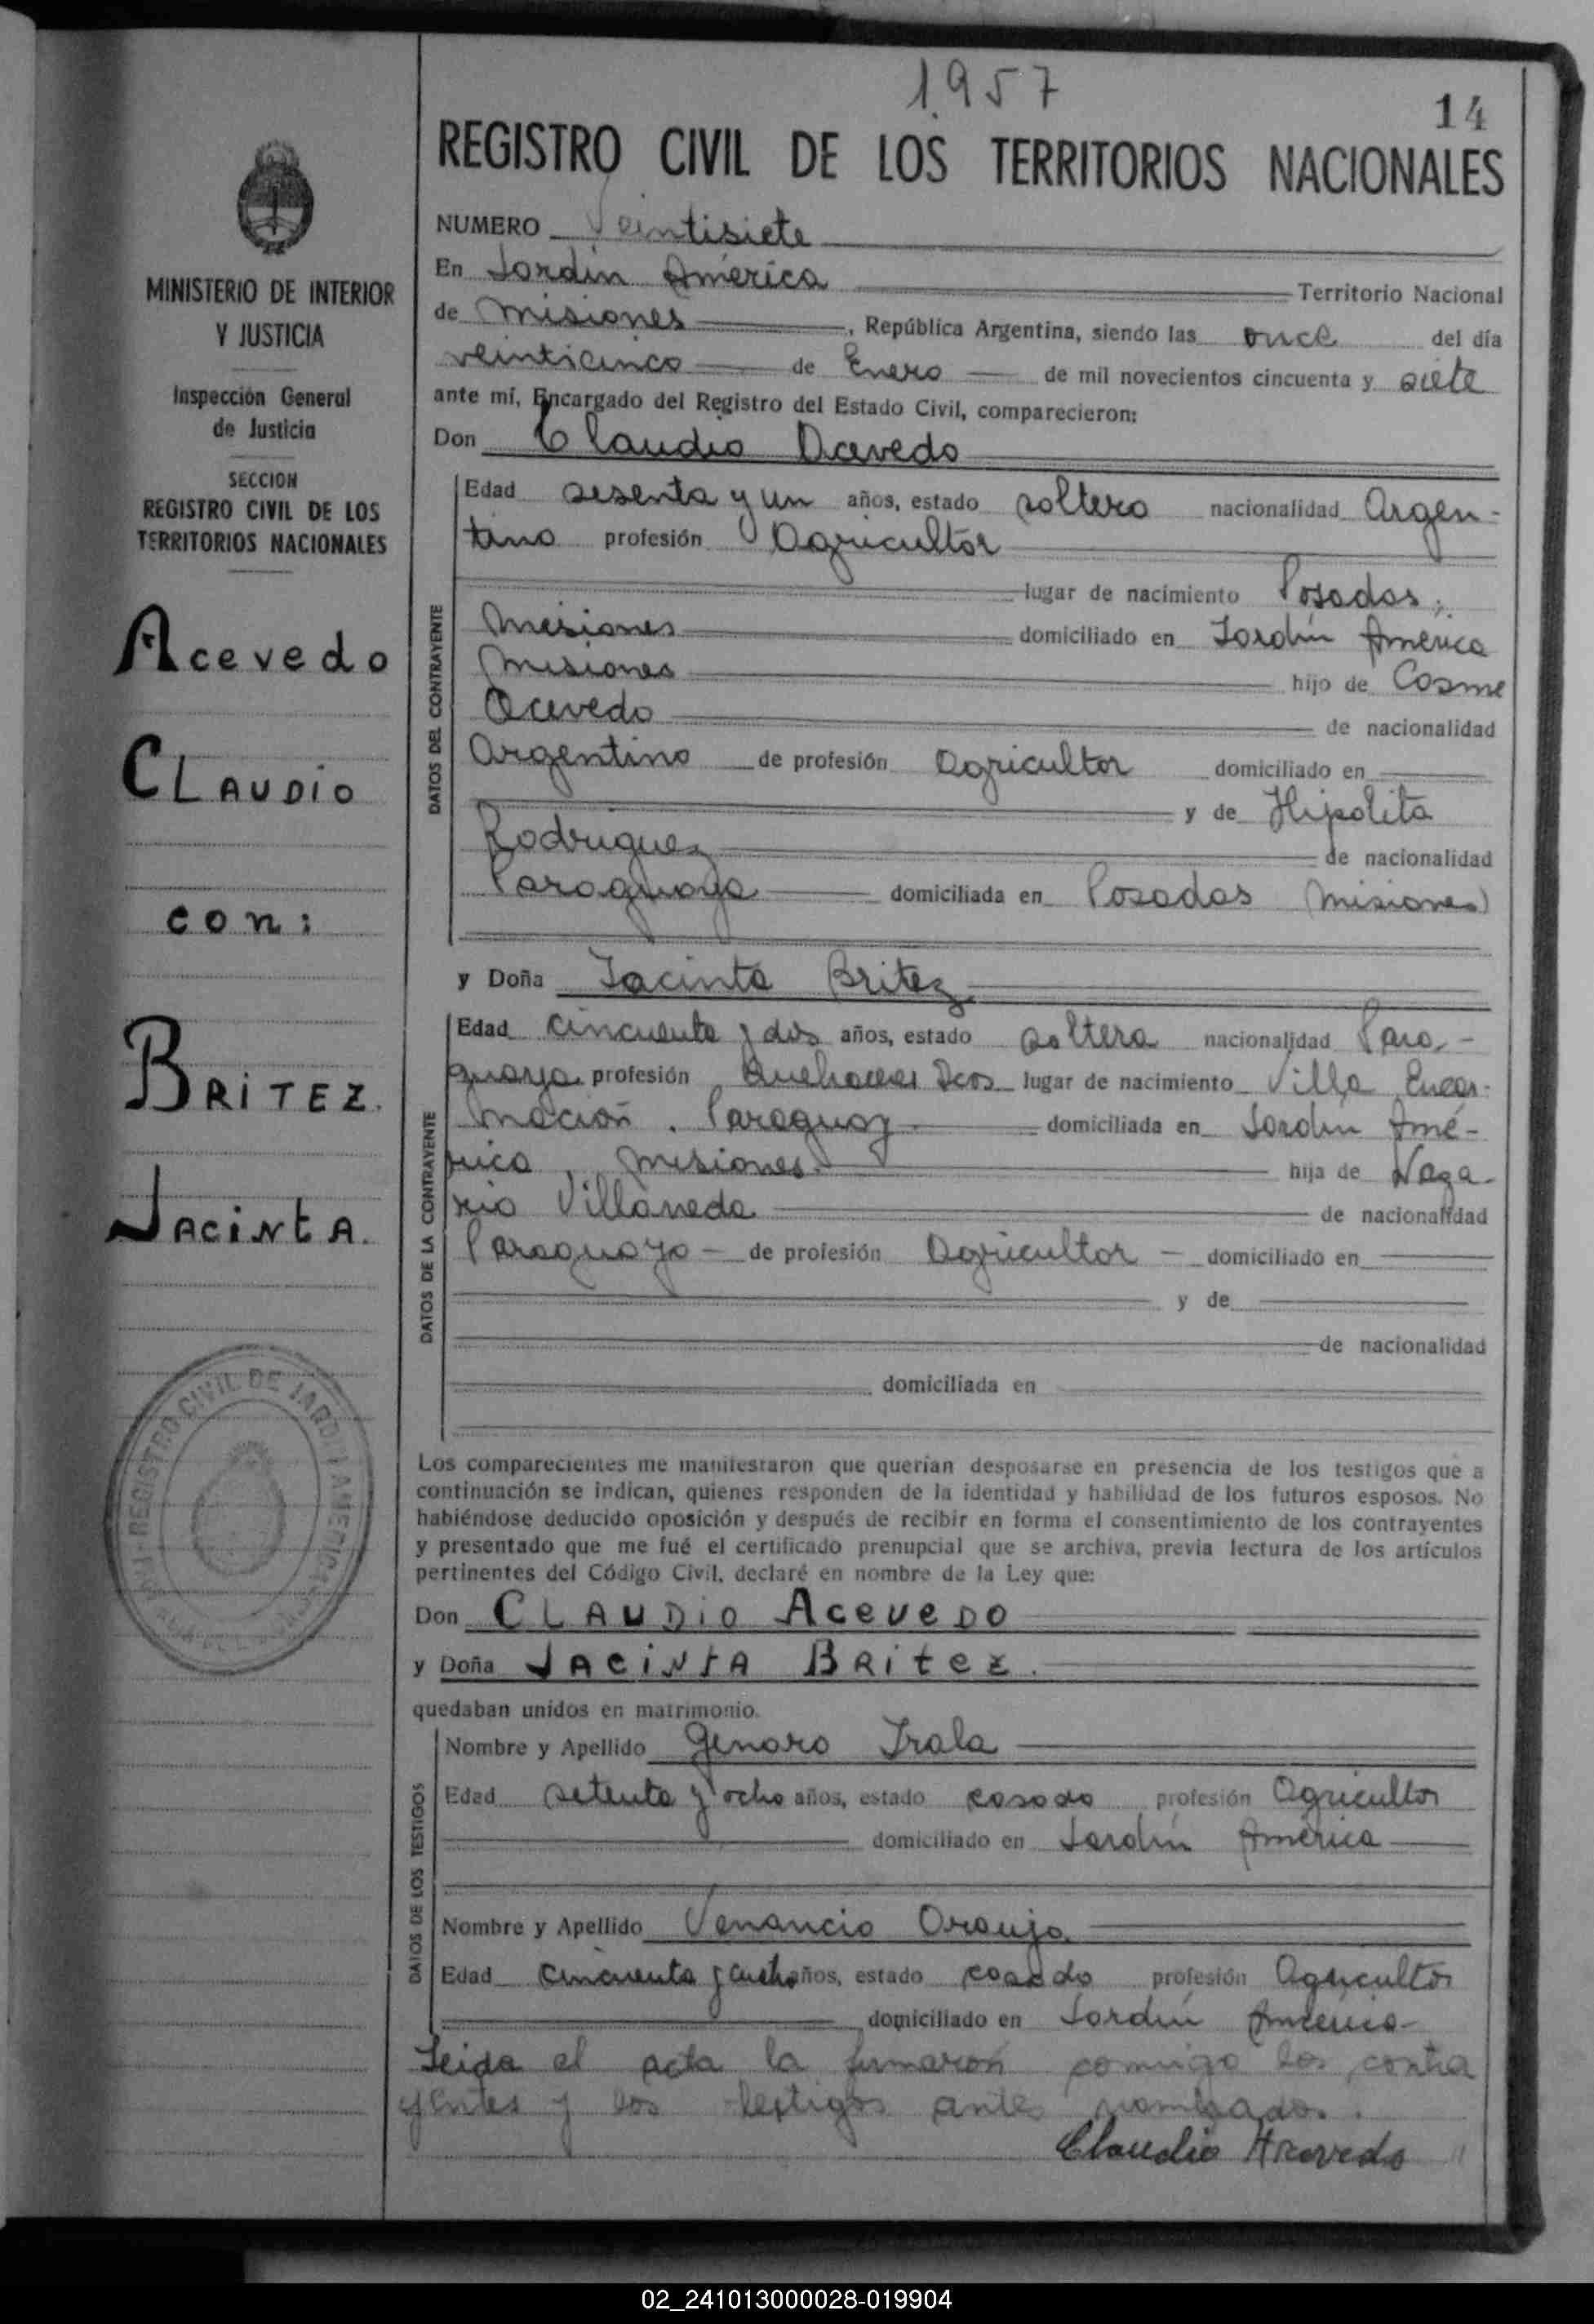 1957
14
REGISTRO CIVIL DE LOS TERRITORIOS NACIONALES
MINISTERIO DE INTERIOR
Y JUSTICIA
Inspección General
de Justicia
SECCION
REGISTRO CIVIL DE LOS
TERRITORIOS NACIONALES
Acevedo
CLAUDIO
con:
BRITEZ.
JACINtA.
REGISTRO CIVIL DE JARDIN AMERICA
NUMERO Veintisiete
En Jardin América Territorio Nacional
de Misiones, República Argentina, siendo las once del día
veinticinco de Enero de mil novecientos cincuenta y siete
ante mí, Encargado del Registro del Estado Civil, comparecieron:
Don Claudio Acevedo
DATOS DEL CONTRAYENTE
Edad sesenta y un años, estado soltero nacionalidad Argen-
tino profesión Agricultor
lugar de nacimiento Posadas,
Misiones domiciliado en Jardín América
Misiones hijo de Cosme
Acevedo de nacionalidad
Argentino de profesión Agricultor domiciliado en
y de Hipolita
Rodriguez de nacionalidad
Paraguaya domiciliada en Posadas (Misiones)
y Doña Jacinta Britez
DATOS DE LA CONTRAYENTE
Edad cincuenta y dos años, estado soltera nacionalidad Para-
guaya profesión Quehaceres Dcos lugar de nacimiento Villa Encar-
nación, Paraguay domiciliada en Jardín Amé-
rica, Misiones. hija de Naza-
rio Villaneda de nacionalidad
Paraguayo - de profesión Agricultor - domiciliado en
y de
de nacionalidad
domiciliada en
Los comparecientes me manifestaron que querían desposarse en presencia de los testigos que a
continuación se indican, quienes responden de la identidad y habilidad de los futuros esposos. No
habiéndose deducido oposición y después de recibir en forma el consentimiento de los contrayentes
y presentado que me fué el certificado prenupcial que se archiva, previa lectura de los artículos
pertinentes del Código Civil, declaré en nombre de la Ley que:
Don CLAUDIO ACEVEDO
y Doña JACINTA BRITEZ.
quedaban unidos en matrimonio.
DATOS DE LOS TESTIGOS
Nombre y Apellido Genaro Irala
Edad setenta y ocho años, estado casado profesión Agricultor
domiciliado en Jardín América
Nombre y Apellido Venancio Araujo
Edad cincuenta y ocho años, estado casado profesión Agricultor
domiciliado en Jardín América-
Leida el acta la firmaron conmigo los contra
yentes y los testigos antes nombrados.
Claudio Acevedo
02_241013000028-019904